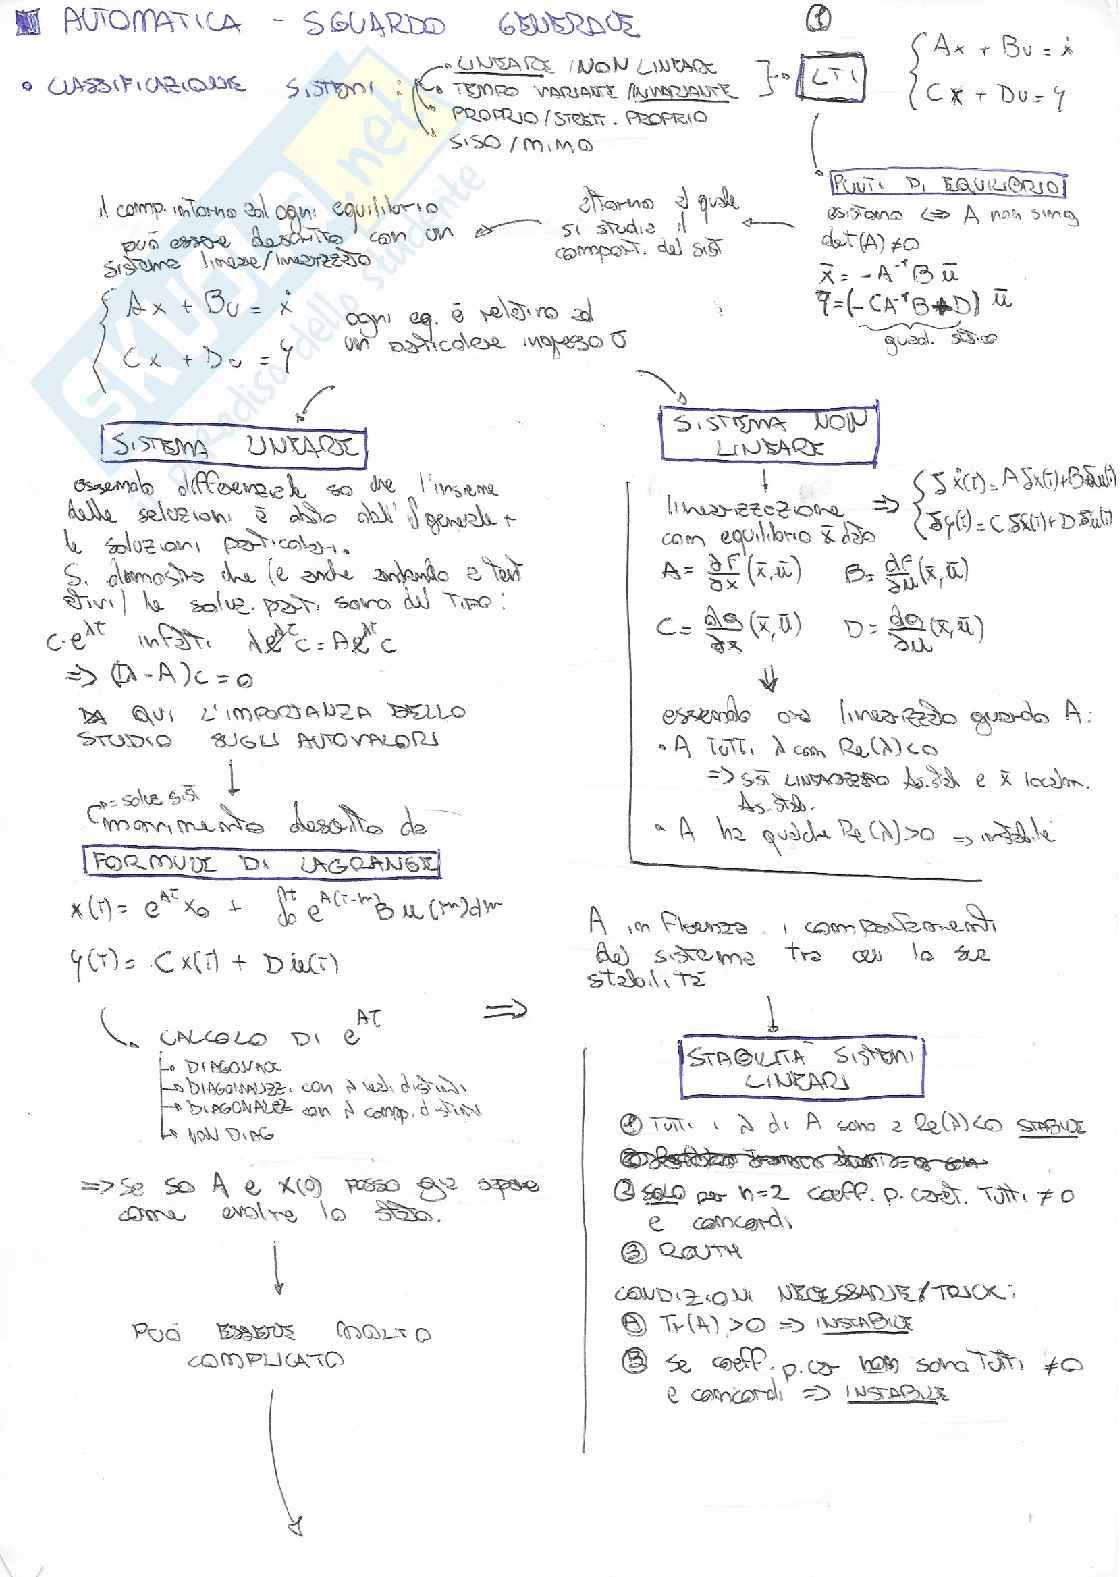 AUTOMATICA - SGUARDO GENERALE
①
• CLASSIFICAZIONE SISTEMI:
• LINEARE / NON LINEARE
• TEMPO VARIANTE / INVARIANTE
• PROPRIO / STRETT. PROPRIO
• SISO / MIMO
LTI
{ Ax + Bu = ẋ
{ Cx + Du = y
PUNTI DI EQUILIBRIO
esistono <=> A non sing
det(A) ≠ 0
x̄ = -A⁻¹B ū
ȳ = (-CA⁻¹B + D) ū
guad. statico
attorno al quale
si studia il
comport. del sist
il comp. intorno ad ogni equilibrio
può essere descritto con un
sistema lineare/linearizzato
{ Ax + Bu = ẋ
{ Cx + Du = y
ogni eq. è relativo ad
un particolare ingresso ū
SISTEMA LINEARE
essendo differenziale so che l'insieme
delle soluzioni è dato dall' ∫ generale +
le soluzioni particolari.
Si dimostra che (e anche andando a tent
ativi) le soluz. part. sono del TIPO:
c·e^λt infatti λe^λt c = Ae^λt c
=> (Iλ - A)c = 0
DA QUI L'IMPORTANZA DELLO
STUDIO SUGLI AUTOVALORI
= soluz sist
movimento descritto da
FORMULE DI LAGRANGE
x(t) = e^At x₀ + ∫₀^t e^A(t-m) B u(m) dm
y(t) = Cx(t) + Du(t)
CALCOLO DI e^At
DIAGONALE
DIAGONALIZZ. con λ reali distinti
DIAGONALIZZ con λ comp. distinti
NON DIAG
=> Se so A e x(0) posso già sapere
come evolve lo stato.
PUÒ ESSERE MOLTO
COMPLICATO
SISTEMA NON
LINEARE
linearizzazione
con equilibrio x̄ dato
=> { δẋ(t) = Aδx(t) + Bδu(t)
{ δy(t) = Cδx(t) + Dδu(t)
A = ∂f/∂x (x̄,ū) B = ∂f/∂u (x̄,ū)
C = ∂g/∂x (x̄,ū) D = ∂g/∂u (x̄,ū)
essendo ora linearizzato guardo A:
• A TUTTI λ con Re(λ)<0
=> sist LINEARIZZATO As. stab e x̄ localm.
As. stab.
• A ha qualche Re(λ)>0 => instabile
A influenza i comportamenti
del sistema tra cui la sua
stabilità
=>
STABILITÀ SISTEMI
LINEARI
① TUTTI i λ di A sono a Re(λ)<0 STABILE
② SOLO per n=2 coeff. p. caret. TUTTI ≠ 0
e concordi
③ ROUTH
CONDIZIONI NECESSARIE/TRICK:
Ⓐ Tr(A) > 0 => INSTABILE
Ⓑ Se coeff. p. car non sono TUTTI ≠ 0
e concordi => INSTABILE
SKUOLA.net
il paradiso dello studente